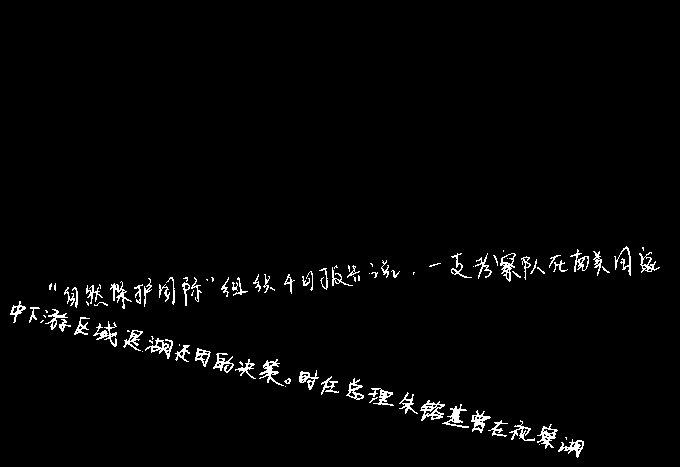 “自然保护国际”组织4日报告说，一支考察队在南美国家
中下游区域退湖还田的决策。时任总理朱镕基曾在视察湖